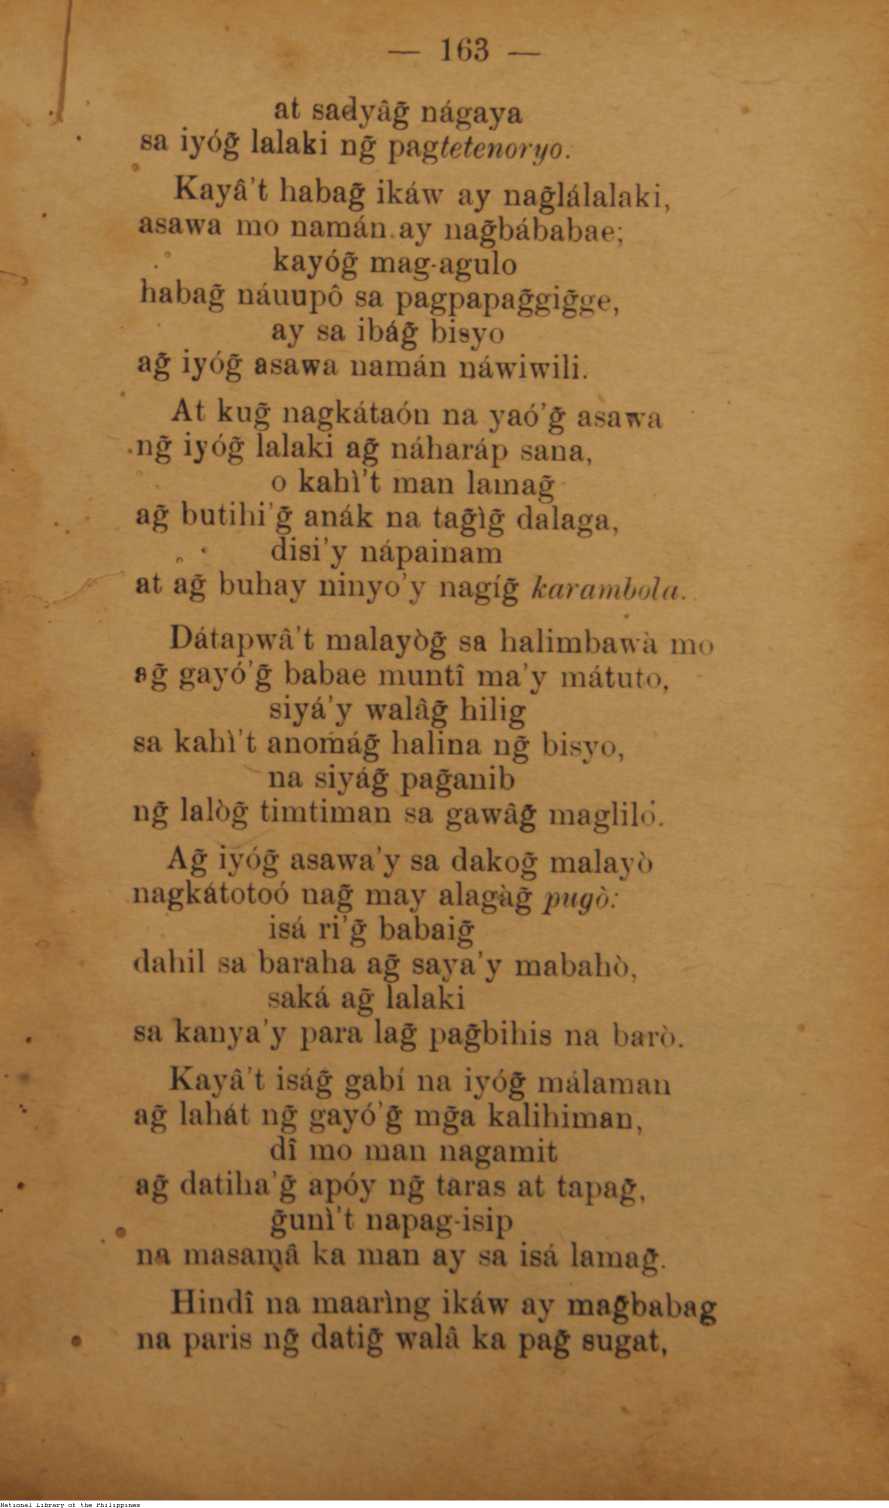 — 163 —
at sadyâg̃ nágaya
sa iyóg̃ lalaki ng̃ pagtetenoryo.
Kayâ't habag̃ ikáw ay nag̃lálalaki,
asawa mo namán ay nag̃bábabae;
kayóg̃ mag-agulo
habag̃ náuupô sa pagpapag̃gig̃ge,
ay sa ibág̃ bisyo
ag̃ iyóg̃ asawa namán náwiwili.
At kug̃ nagkátaón na yaó'g̃ asawa
ng̃ iyóg̃ lalaki ag̃ náharáp sana,
o kahì't man lamag̃
ag̃ butihi'g̃ anák na tag̃ìg̃ dalaga,
disi'y nápainam
at ag̃ buhay ninyo'y nagíg̃ karambola.
Dátapwâ't malayòg̃ sa halimbawà mo
ag̃ gayó'g̃ babae muntî ma'y mátuto,
siyá'y walâg̃ hilig
sa kahì't anomág̃ halina ng̃ bisyo,
na siyág̃ pag̃anib
ng̃ lalòg̃ timtiman sa gawâg̃ magliló.
Ag̃ iyóg̃ asawa'y sa dakog̃ malayò
nagkátotoó nag̃ may alagàg̃ pugò:
isá ri'g̃ babaig̃
dahil sa baraha ag̃ saya'y mabahò,
saká ag̃ lalaki
sa kanya'y para lag̃ pag̃bihis na barò.
Kayâ't iság̃ gabí na iyóg̃ málaman
ag̃ lahát ng̃ gayó'g̃ mg̃a kalihiman,
dî mo man nagamit
ag̃ datiha'g̃ apóy ng̃ taras at tapag̃,
g̃unì't napag-isip
na masamâ ka man ay sa isá lamag̃.
Hindî na maarìng ikáw ay mag̃babag
na paris ng̃ datig̃ walâ ka pag̃ sugat,
National Library of the Philippines